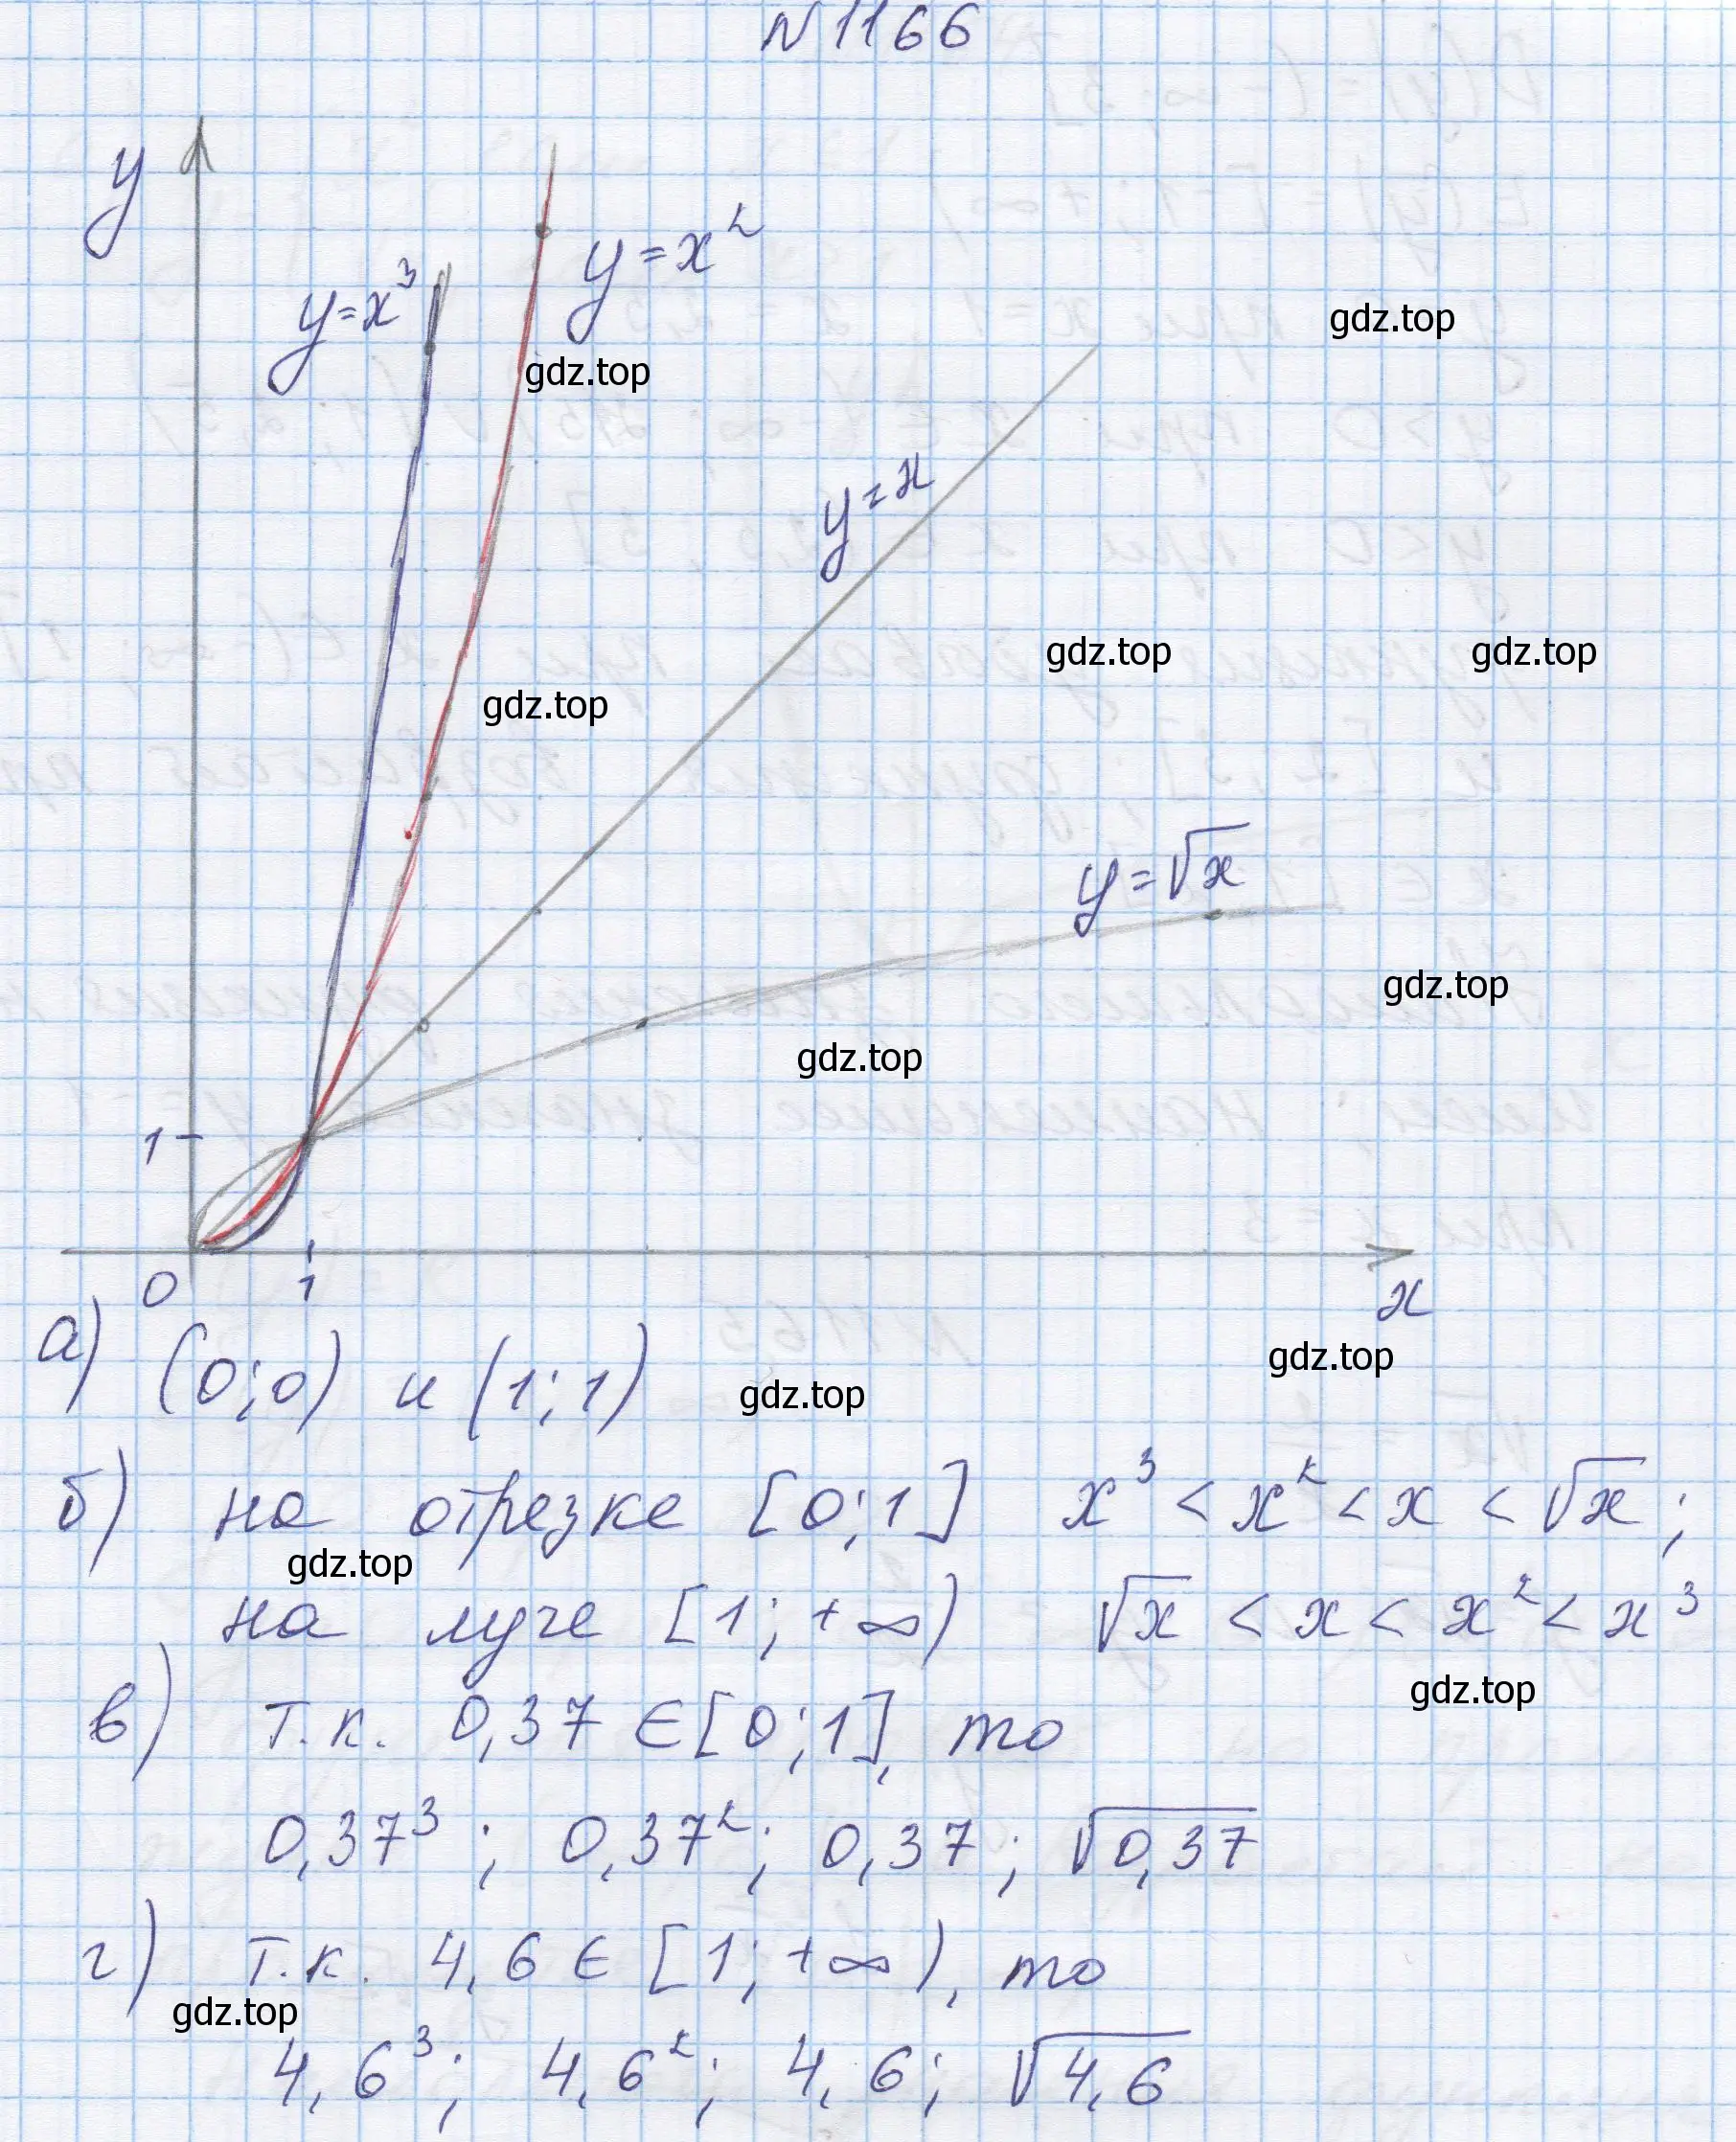 N 1166
y
y=x²
y=x³
gdz.top
gdz.top
y=x
gdz.top
gdz.top
gdz.top
y=√x
gdz.top
gdz.top
1
0
1
x
а) (0;0) и (1;1)
gdz.top
gdz.top
б) на отрезке [0;1] x³ < x² < x < √x ;
gdz.top
на луче [1;+∞) √x < x < x² < x³
gdz.top
в) т.к. 0,37 ∈ [0;1], то
0,37³ ; 0,37² ; 0,37 ; √0,37
г) т.к. 4,6 ∈ [1;+∞), то
gdz.top
4,6³; 4,6²; 4,6; √4,6